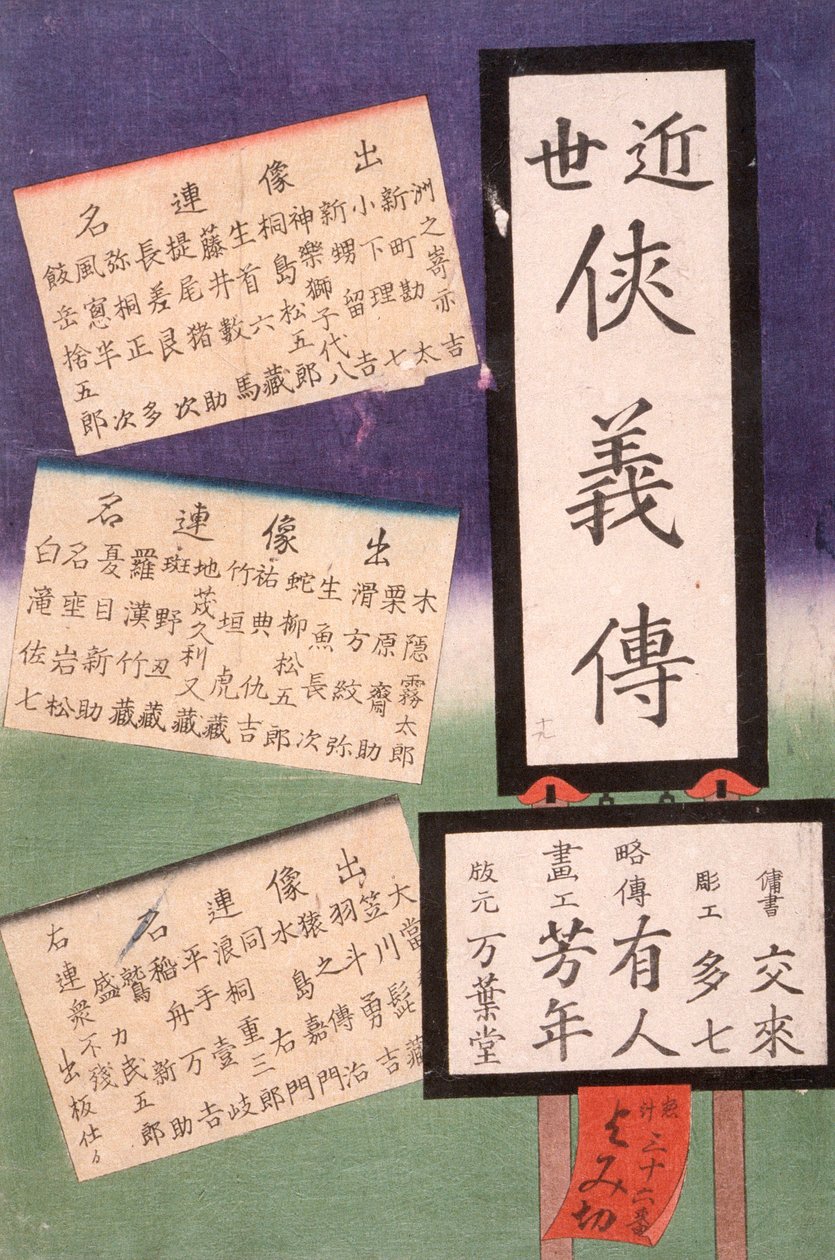 近世
侠義傳
十九
傭書 交來
彫工 多七
略傳 有人
畫工 芳年
版元 万葉堂
惣計三十六番
よみ切
出像連名
洲之嵜亦吉
新町勘太
小下理七
新甥留吉
神樂獅子代八
桐島松五郎
生首六藏
藤井數馬
提尾猪助
長差艮次
弥桐正多
風窓半次
皷岳捨五郎
出像連名
木隠霧太郎
栗原齋助
滑方紋弥
生魚長次
蛇柳松五郎
祐典仇吉
竹垣虎藏
地茂久利又藏
斑野丑藏
羅漢竹藏
憂日新助
名垩岩松
白滝佐七
出像連名
大當髭藏
笠川勇吉
羽斗傳治
猿之嘉門
水島右門
同桐重三郎
浪手壹岐
平舟万吉
稲新助
鷲力民五郎
盛
右連衆不残出板仕り